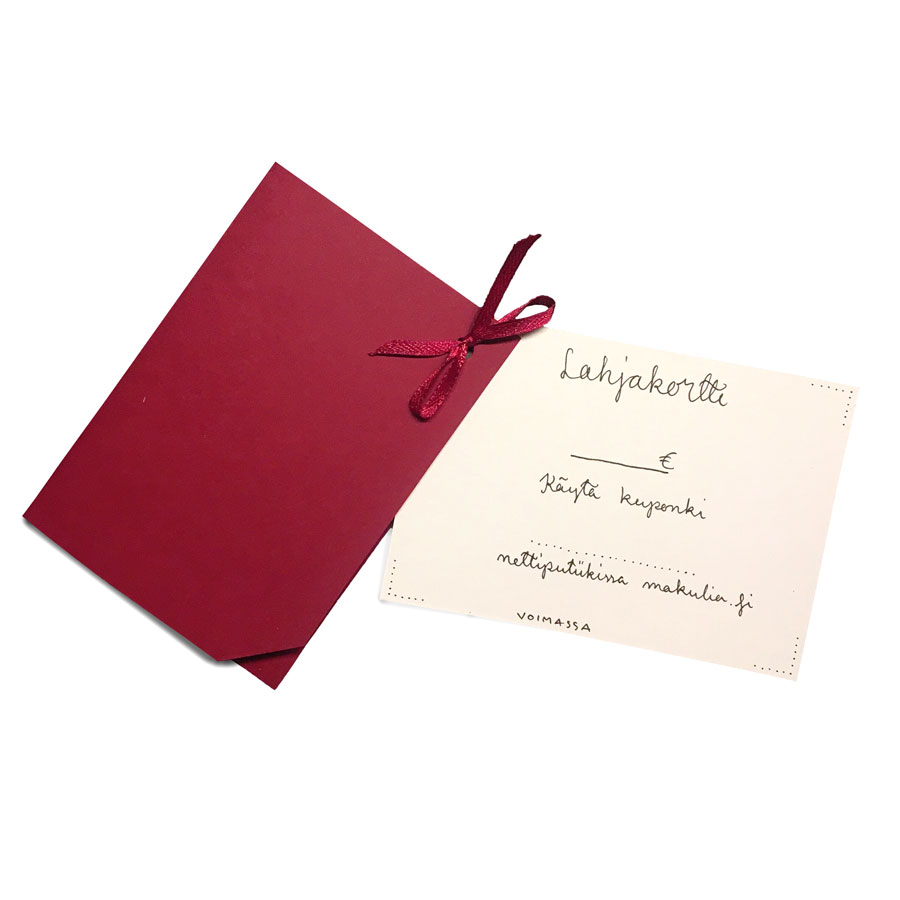 Lahjakortti
€
Käytä kuponki
nettiputiikissa makulia.fi
VOIMASSA